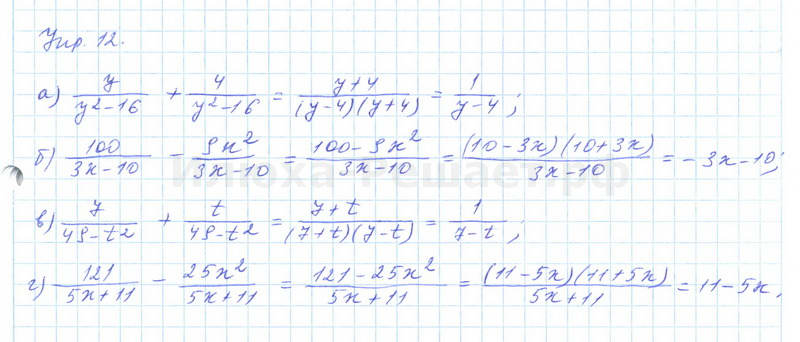 Упр. 12.
а) y/(y²-16) + 4/(y²-16) = (y+4)/((y-4)(y+4)) = 1/(y-4);
б) 100/(3x-10) - 9x²/(3x-10) = (100-9x²)/(3x-10) = ((10-3x)(10+3x))/(3x-10) = -3x-10;
в) 7/(49-t²) + t/(49-t²) = (7+t)/((7+t)(7-t)) = 1/(7-t);
г) 121/(5x+11) - 25x²/(5x+11) = (121-25x²)/(5x+11) = ((11-5x)(11+5x))/(5x+11) = 11-5x.